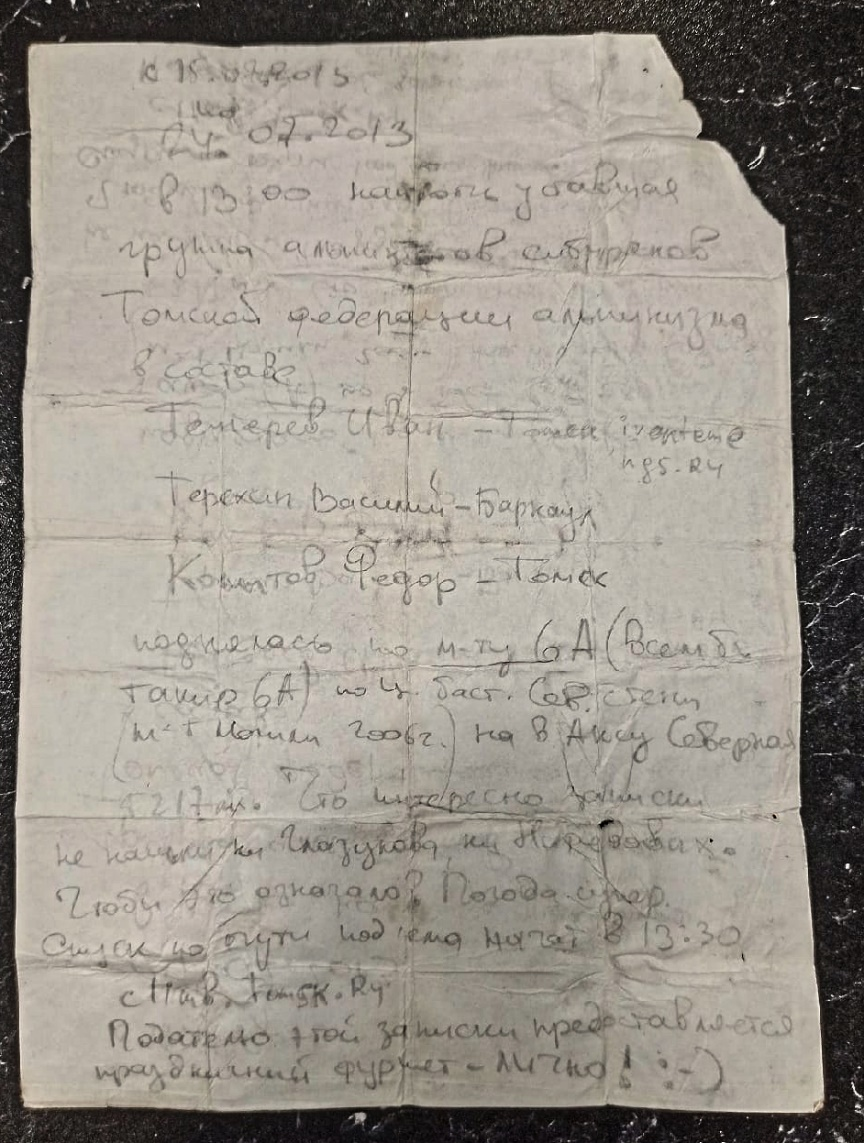 24.07.2013
в 13 00 уставшая
группа альпинистов сибиряков
Томской федерации альпинизма
в составе
Темерев Иван – Томск
ngs.ru
Терехин Василий – Барнаул
Федор – Томск
поднялась по м-ту 6А (
6А) по ц. баст. Сев. стены
(м-т Мошни 2006г.) на в Аксу Северная
5217м. Что интересно записки
не нашли ни Глазунова, ни
Чтобы это означало? Погода супер.
Спуск по пути подъема начат в 13:30
climb.tomsk.ru
Подателю этой записки предоставляется
праздничный фуршет – лично! :-)